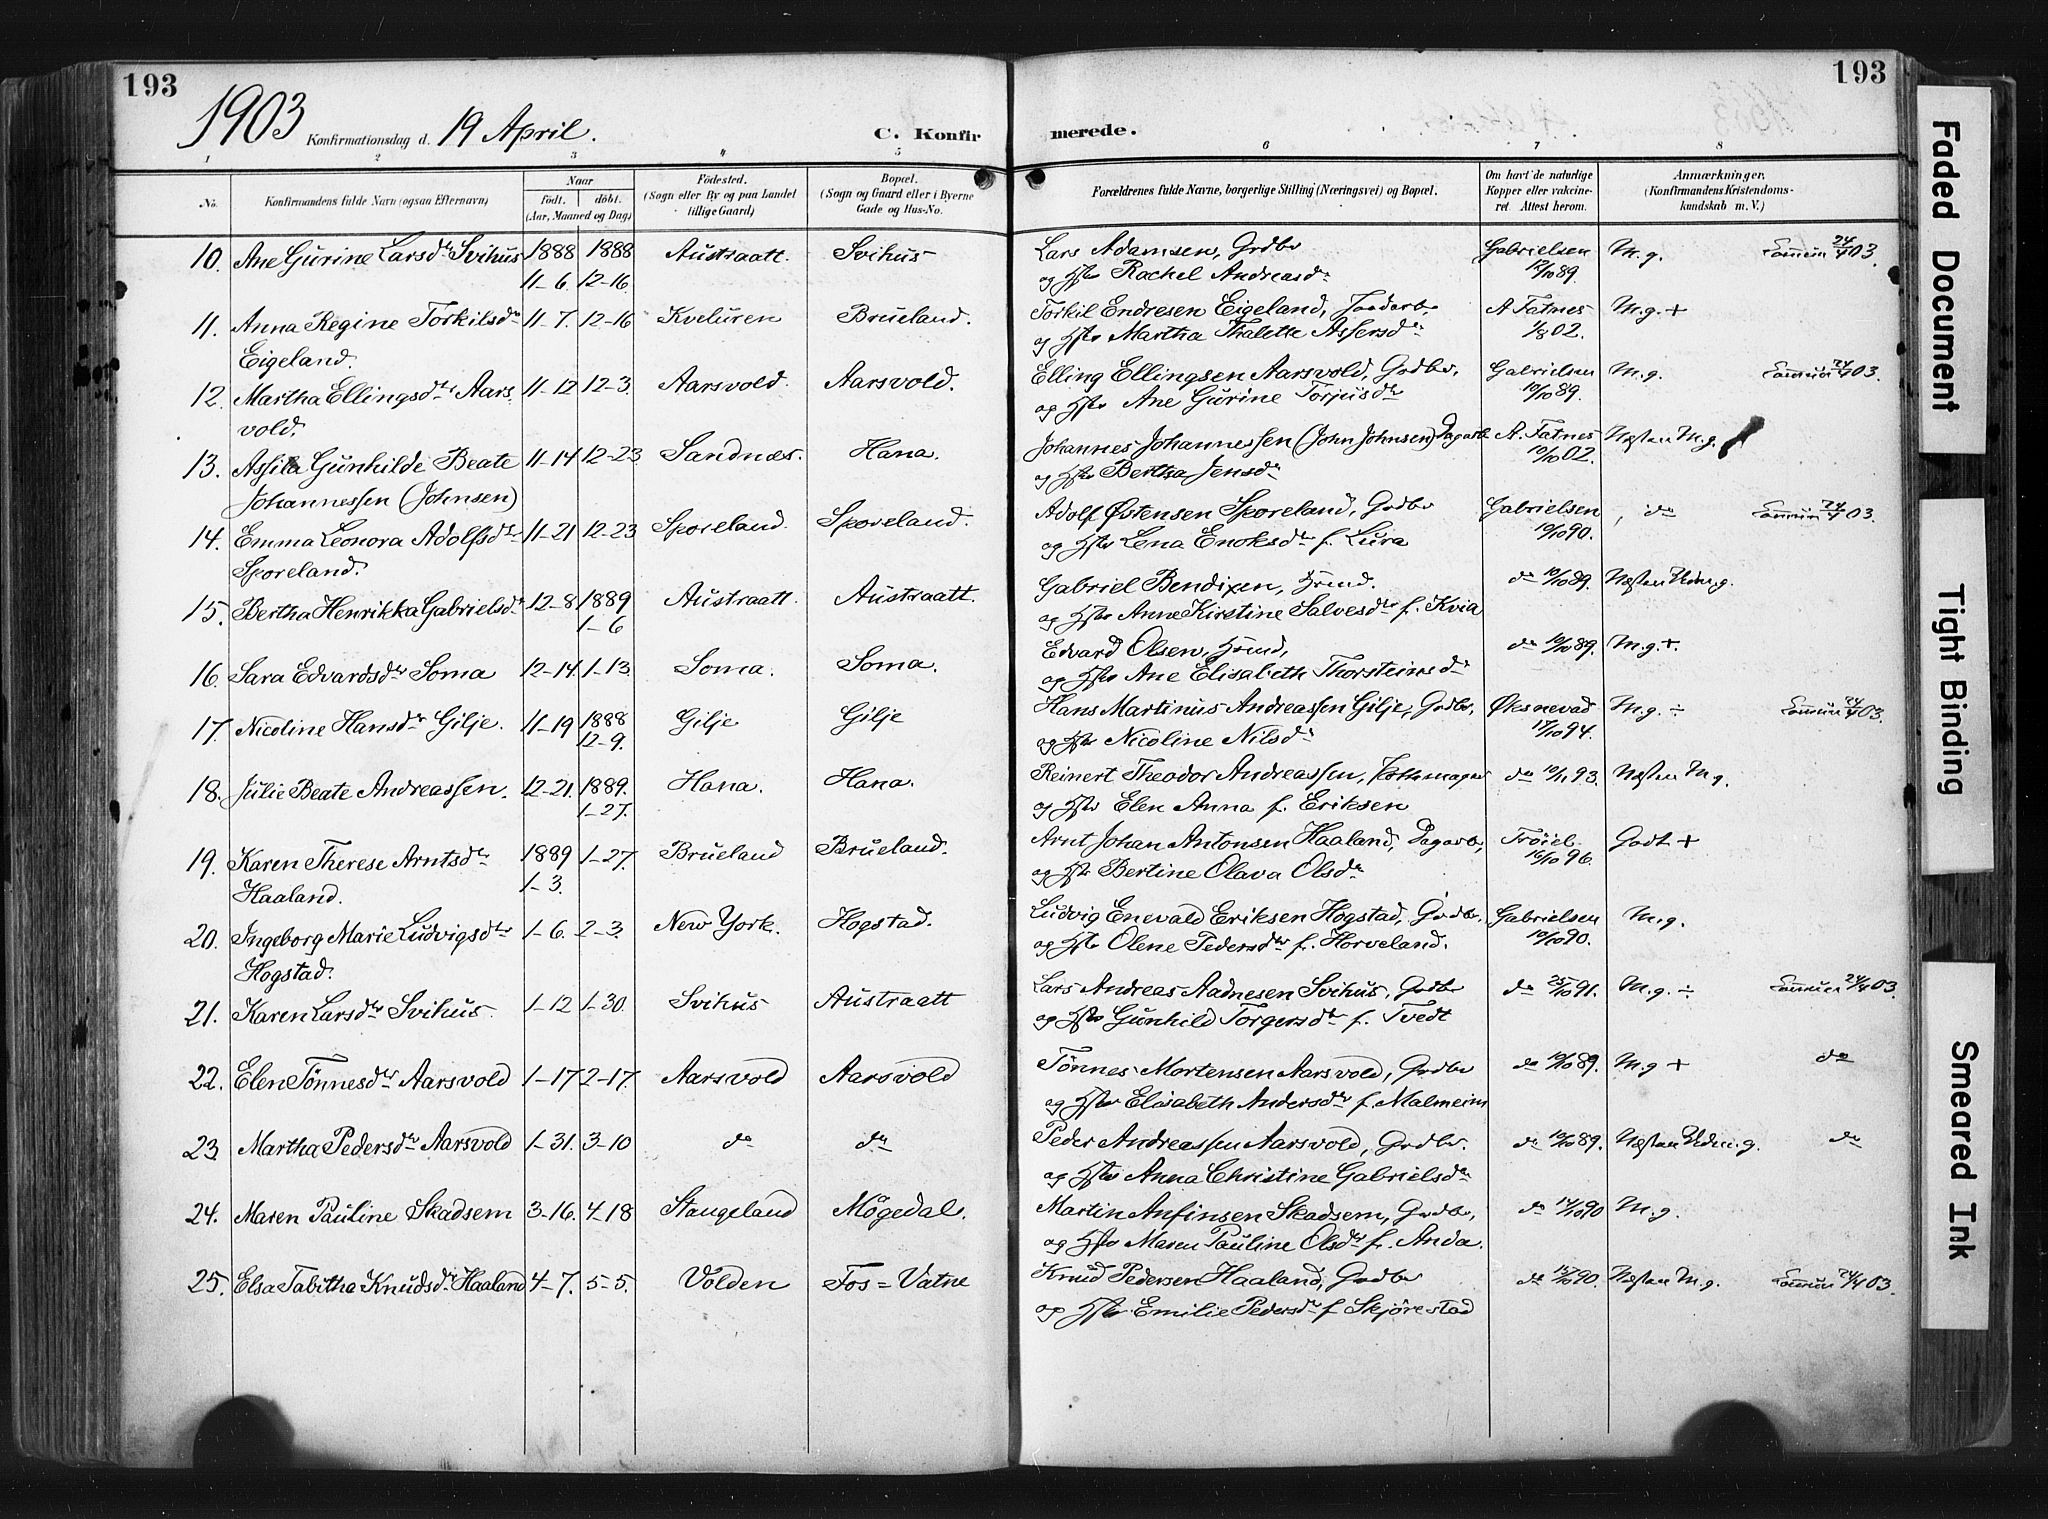 193
193
1903 Konfirmationsdag d. 19 April. C. Konfir merede.
1 2 3 4 5 6 7 8
No. Konfirmandens fulde Navn (ogsaa Efternavn) Naar født. døbt. (Aar, Maaned og Dag) Fødested. (Sogn eller By og paa Landet tillige Gaard) Bopæl. (Sogn og Gaard eller i Byerne Gade og Hus-No. Forældrenes fulde Navne, borgerlige Stilling (Næringsvei) og Bopæl. Om havt de naturlige Kopper eller vaccineret. Attest herom. Anmærkninger. (Konfirmandens Kristendomskundskab m. V.)
10. Ane Gurine Larsdtr Svihus 1888 1888 Austraatt. Svihus Lars Adamsen, Grdbr Gabrielsen M.g. 24/4 03.
11-6. 12-16. og Hstr Rachel Andreasdr 12/10 89.
11. Anna Regine Torkilsdtr 11-7. 12-16 Kveluren Brueland. Torkil Endresen Eigeland, A Fatnes M.g. +
Eigeland. og Hstr Martha Thalette Assersdr 1/8 02.
12. Martha Ellingsdtr Aars 11-12 12-3. Aarsvold. Aarsvold. Elling Ellingsen Aarsvold, Grdbr, Gabrielsen M.g. 24/4 03.
vold. og Hstr Ane Gurine Torjusdtr 10/10 89.
13. Assila Gunhilde Beate 11-14 12-23 Sandnes. Hana. Johannes Johannessen (John Johnsen) Dagarb A. Fatnes Næsten M.g.
Johannessen (Johnsen) og Hstr Bertha Jensdr 10/10 02.
14. Emma Leonora Adolfsdtr 11-21 12-23 Sporeland. Sporeland. Adolf Østensen Sporeland, Grdbr Gabrielsen, do 24/4 03.
Sporeland. og Hstr Lena Enoksdtr f. Lura 10/10 90.
15. Bertha Henrikka Gabrielsdtr 12-8 1889 Austraatt. Austraatt. Gabriel Bendixen, Hsmd. do 10/10 89. Næsten Udm.g.
1-6 og Hstr Anne Kirstine Salvesdtr f. Kvia
16. Sara Edvardsdtr Soma 12-14. 1-13. Soma. Soma. Edvard Olsen, Hsmd, do 10/10 89. M.g. +.
og Hstr Ane Elisabeth Thorsteinsdr
17. Nicoline Hansdtr Gilje. 11-19 1888 Gilje Gilje Hans Martinus Andreassen Gilje, Grdbr, Øksnevad M.g. ÷ 24/4 03.
12-9. og Hstr Nicoline Nilsdr 17/10 94.
18. Julie Beate Andreassen. 12-21. 1889. Hana. Hana. Reinert Theodor Andreassen, Pottemager do 10/11 93. Næsten M.g.
1-27. og Hstr Elen Anna f. Eriksen
19. Karen Therese Arntsdtr 1889 1-27. Brueland Brueland. Arnt Johan Antonsen Haaland, Dagarb, Trøiel. Godt +
Haaland. 1-3. og Hstr Bertine Olava Olsdr 16/10 96.
20. Ingeborg Marie Ludvigsdtr 1-6. 2-3. New York. Hogstad. Ludvig Enevald Eriksen Hogstad, Grdbr. Gabrielsen M.g.
Hogstad. og Hstr Olene Pedersdtr f. Horveland. 10/10 90.
21. Karen Larsdtr Svihus. 1-12 1-30. Svihus Austraatt Lars Andreas Aadnesen Svihus, Grdbr do 25/10 91. M.g. ÷ 24/4 03.
og Hstr Gunhild Torgersdtr f. Tvedt
22. Elen Tønnesdtr Aarsvold 1-17 2-17. Aarsvold Aarsvold Tønnes Mortensen Aarsvold, Grdbr do 10/10 89. M.g + do
og Hstr Elisabeth Andersdtr f. Malmeim
23. Martha Pedersdtr Aarsvold 1-31. 3-10 do do Peder Andreassen Aarsvold, Grdbr. do 10/10 89. Næsten Udm.g. do
og Hstr Anna Christine Gabrielsdr
24. Maren Pauline Skadsem 3-16. 4-18 Stangeland Møgedal. Martin Anfinsen Skadsem, Grdbr, do 17/10 90 M.g.
og Hstr Maren Pauline Olsdtr f. Anda.
25. Elsa Tabitha Knudsdtr Haaland 4-7. 5-5. Volden Fos=Vatne Knud Pedersen Haaland, Grdbr do 15/10 90. Næsten M.g. 24/4 03.
og Hstr. Emilie Pedersdtr f Skjørestad
Faded Document
Tight Binding
Smeared Ink